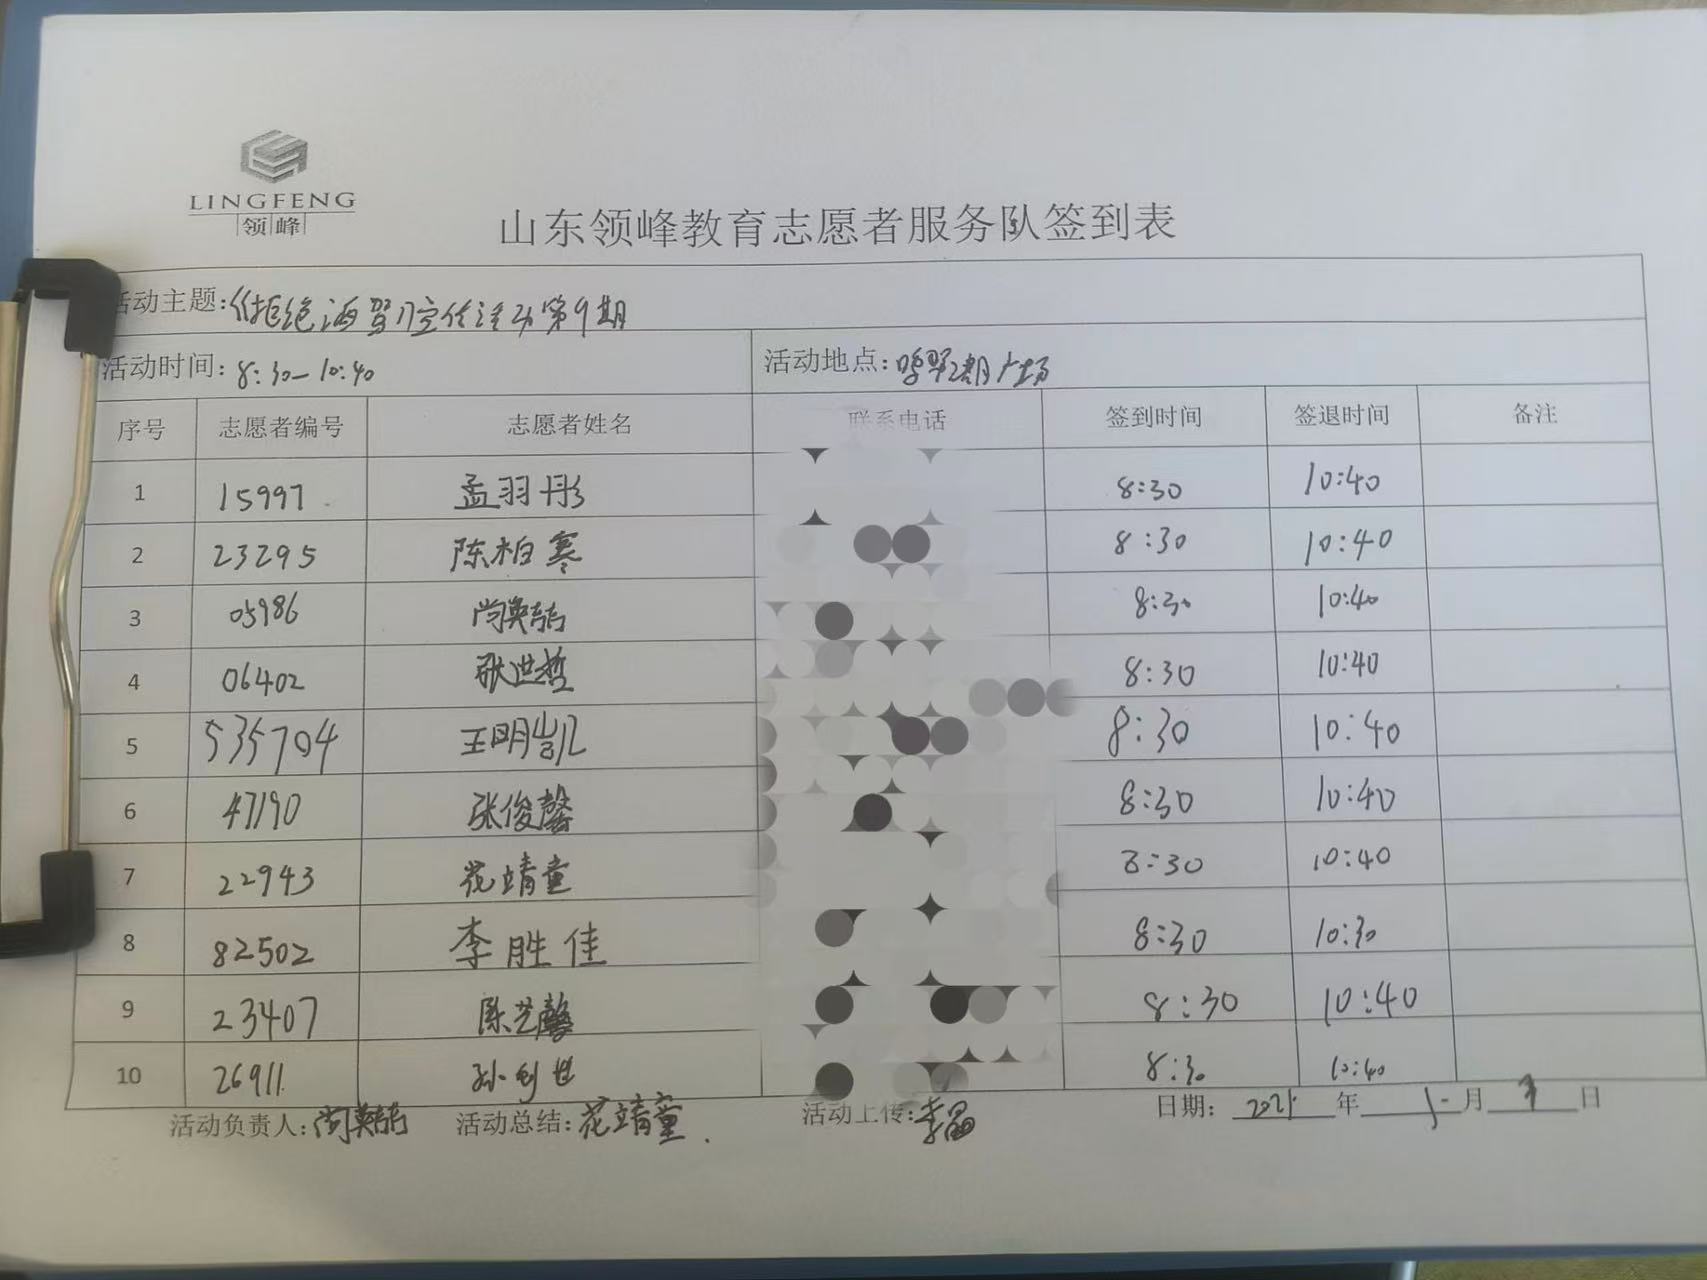 LINGFENG
领峰
山东领峰教育志愿者服务队签到表
活动主题:《拒绝酒驾》宣传活动第9期
活动时间: 8:30—10:40 活动地点: 广场
序号 志愿者编号 志愿者姓名 联系电话 签到时间 签退时间 备注
1 15997 孟羽彤 8:30 10:40
2 23295 陈柏寒 8:30 10:40
3 05986 尚 8:30 10:40
4 06402 张世哲 8:30 10:40
5 535704 王明凯 8:30 10:40
6 47190 张俊馨 8:30 10:40
7 22943 花靖童 8:30 10:40
8 82502 李胜佳 8:30 10:30
9 23407 陈艺馨 8:30 10:40
10 26911 孙 世 8:30 10:40
活动负责人: 尚 活动总结: 花靖童. 活动上传: 李晶 日期: 年 月 日